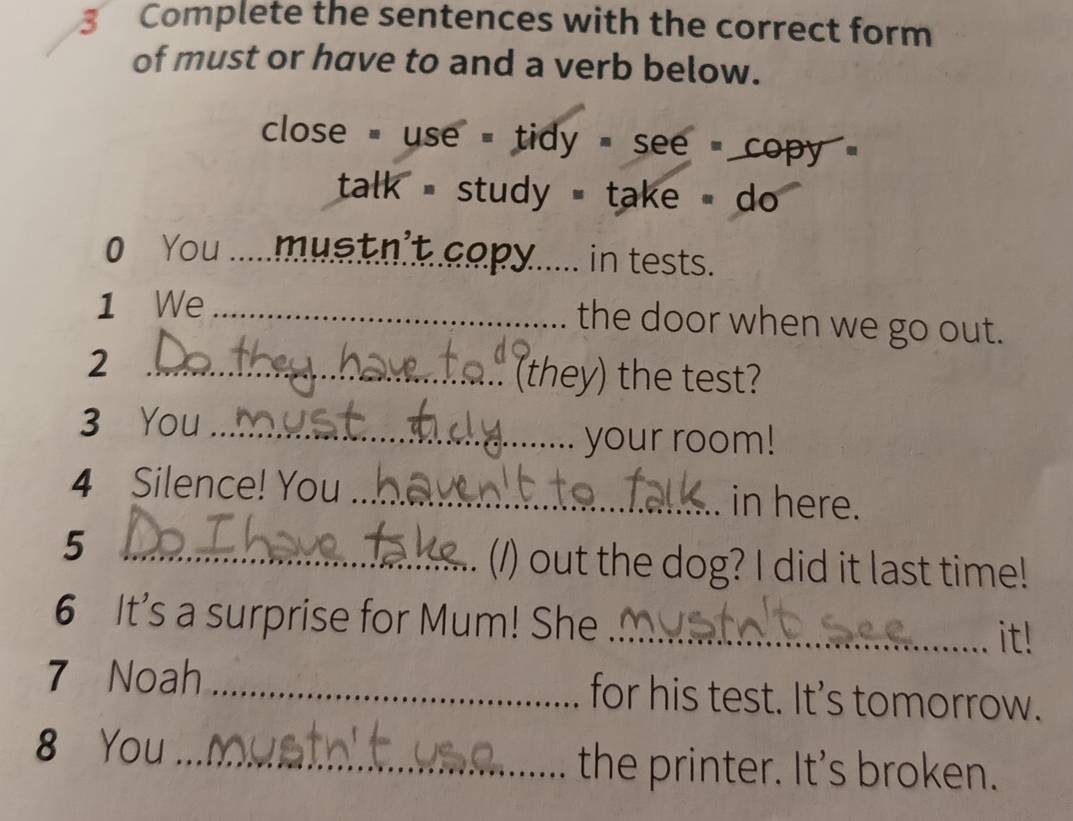 3 Complete the sentences with the correct form
of must or have to and a verb below.
close ▪ use ▪ tidy ▪ see ▪ copy ▪
talk ▪ study ▪ take ▪ do
0 You .....mustn't copy...... in tests.
1 We .................................... the door when we go out.
2 Do they have to do (they) the test?
3 You must tidy your room!
4 Silence! You haven't to talk in here.
5 Do I have take (I) out the dog? I did it last time!
6 It's a surprise for Mum! She mustn't see it!
7 Noah .................................... for his test. It's tomorrow.
8 You mustn't use the printer. It's broken.